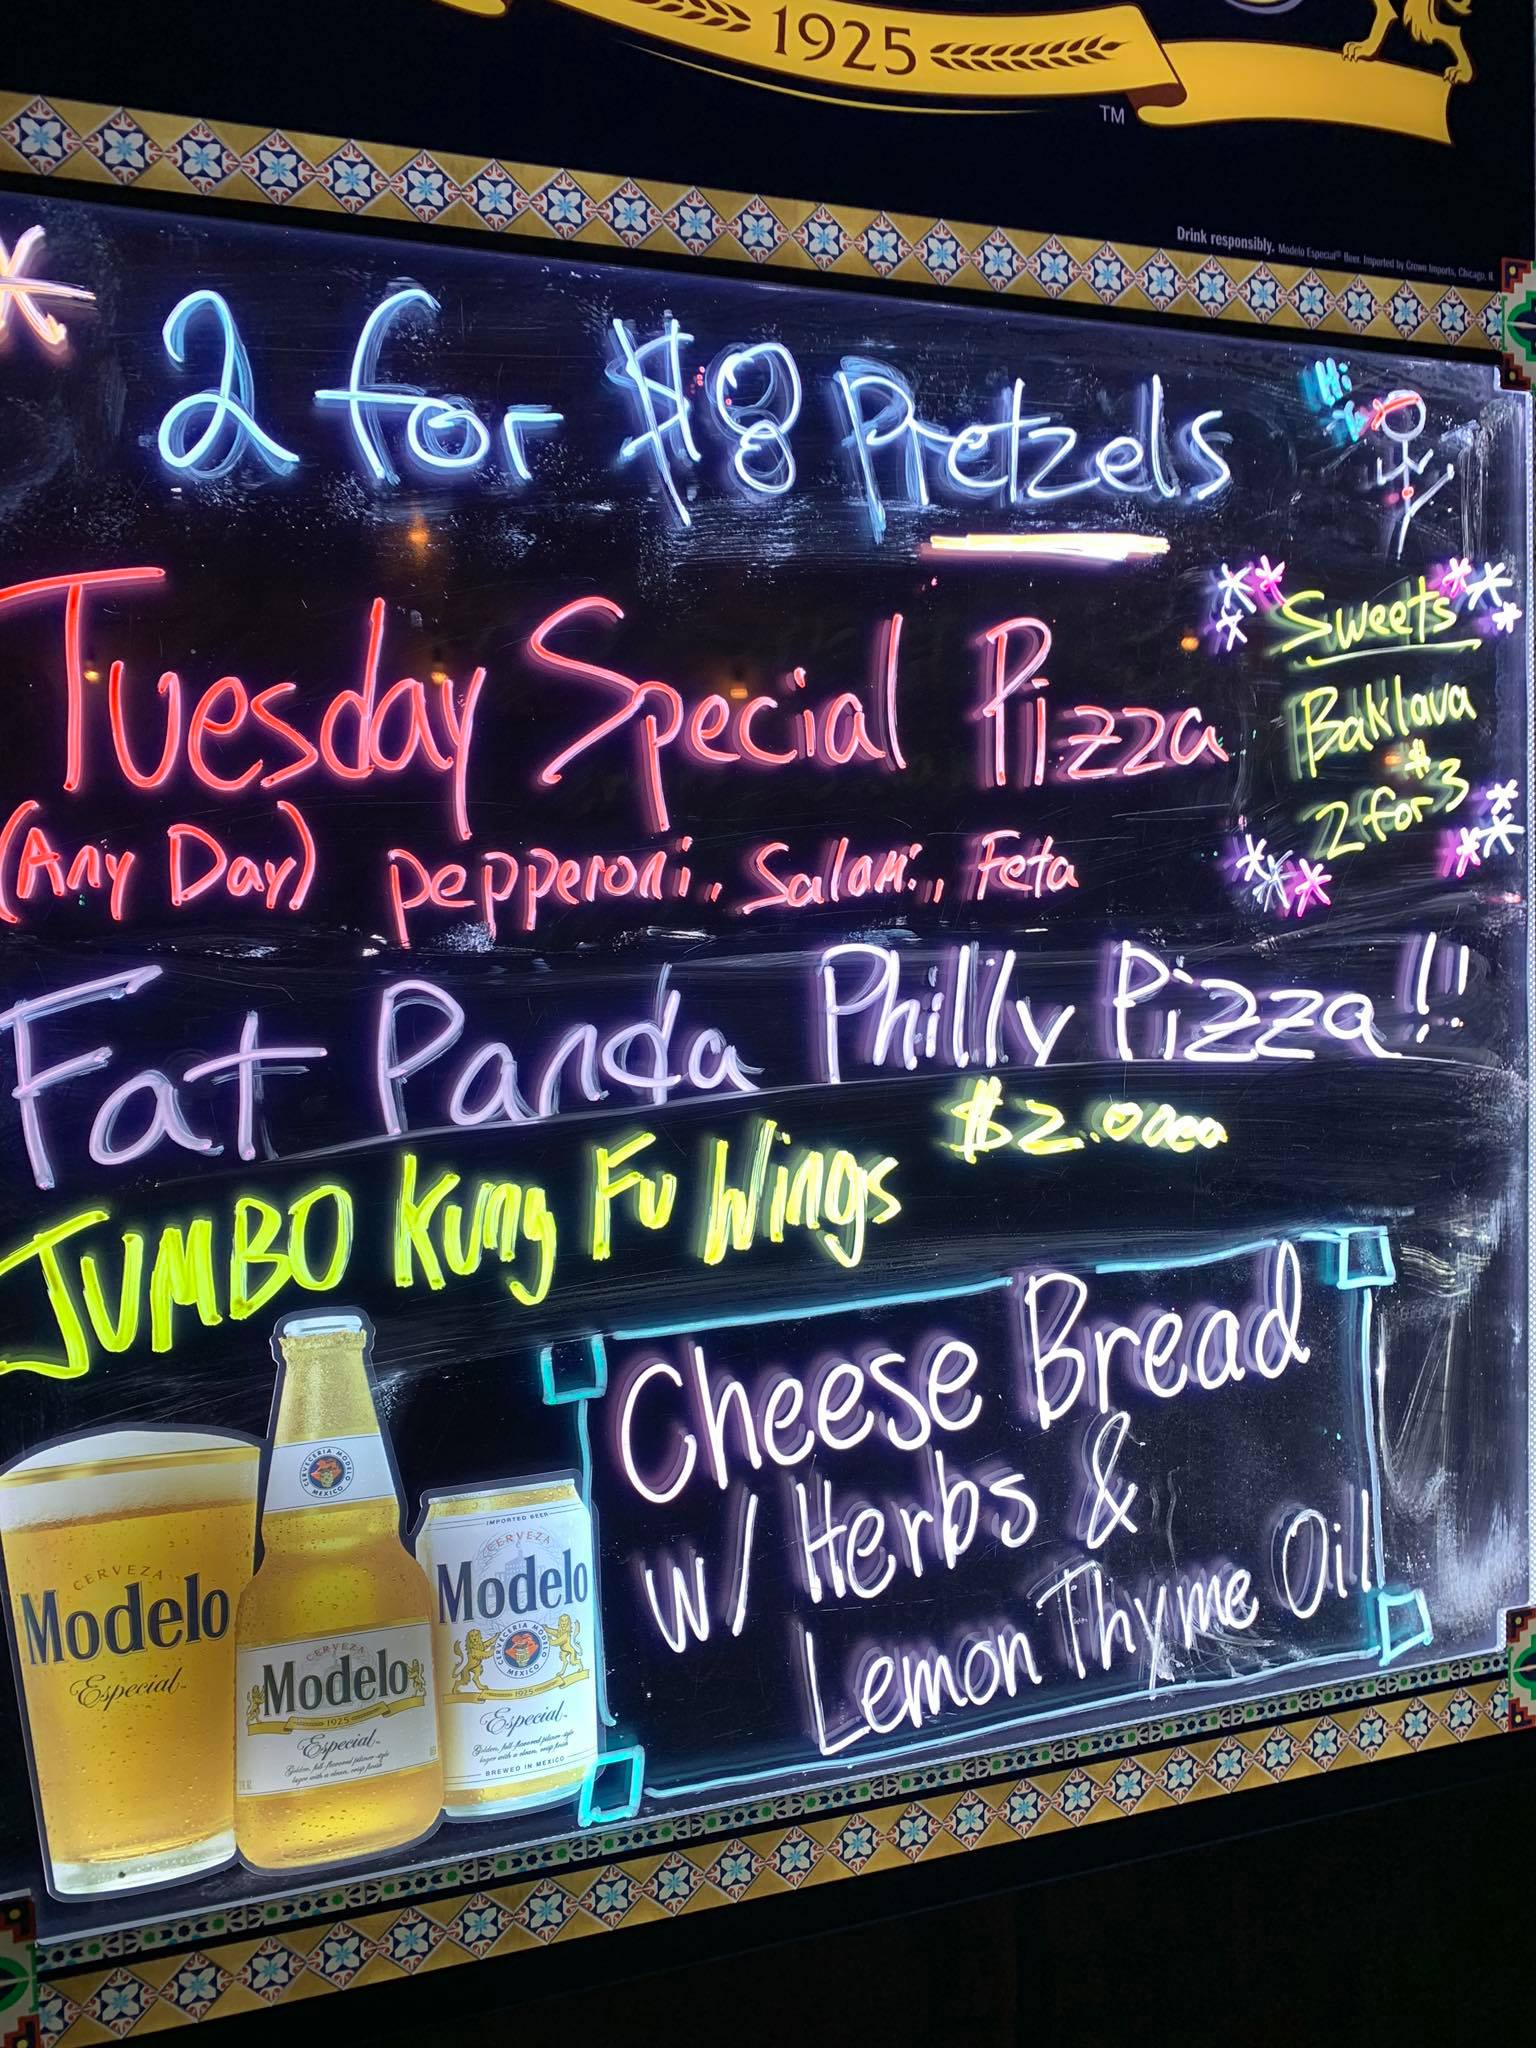 1925
TM
Drink responsibly. Modelo Especial® Beer. Imported by Crown Imports, Chicago, IL
* 2 for $8 Pretzels
Hi
Tuesday Special Pizza
(Any Day) pepperoni, Salami, Feta
Sweets
Baklava
2 for $3
Fat Panda Philly Pizza!!
JUMBO Kung Fu Wings $2.00ea
Cheese Bread
w/ Herbs &
Lemon Thyme Oil
CERVEZA
Modelo
Especial
CERVECERIA MODELO
MEXICO
CERVEZA
Modelo
1925
Especial
Golden, full-flavored pilsner-style
lager with a clean, crisp finish
IMPORTED BEER
CERVEZA
Modelo
CERVECERIA MODELO
MEXICO
1925
Especial
Golden, full-flavored pilsner-style
lager with a clean, crisp finish
BREWED IN MEXICO